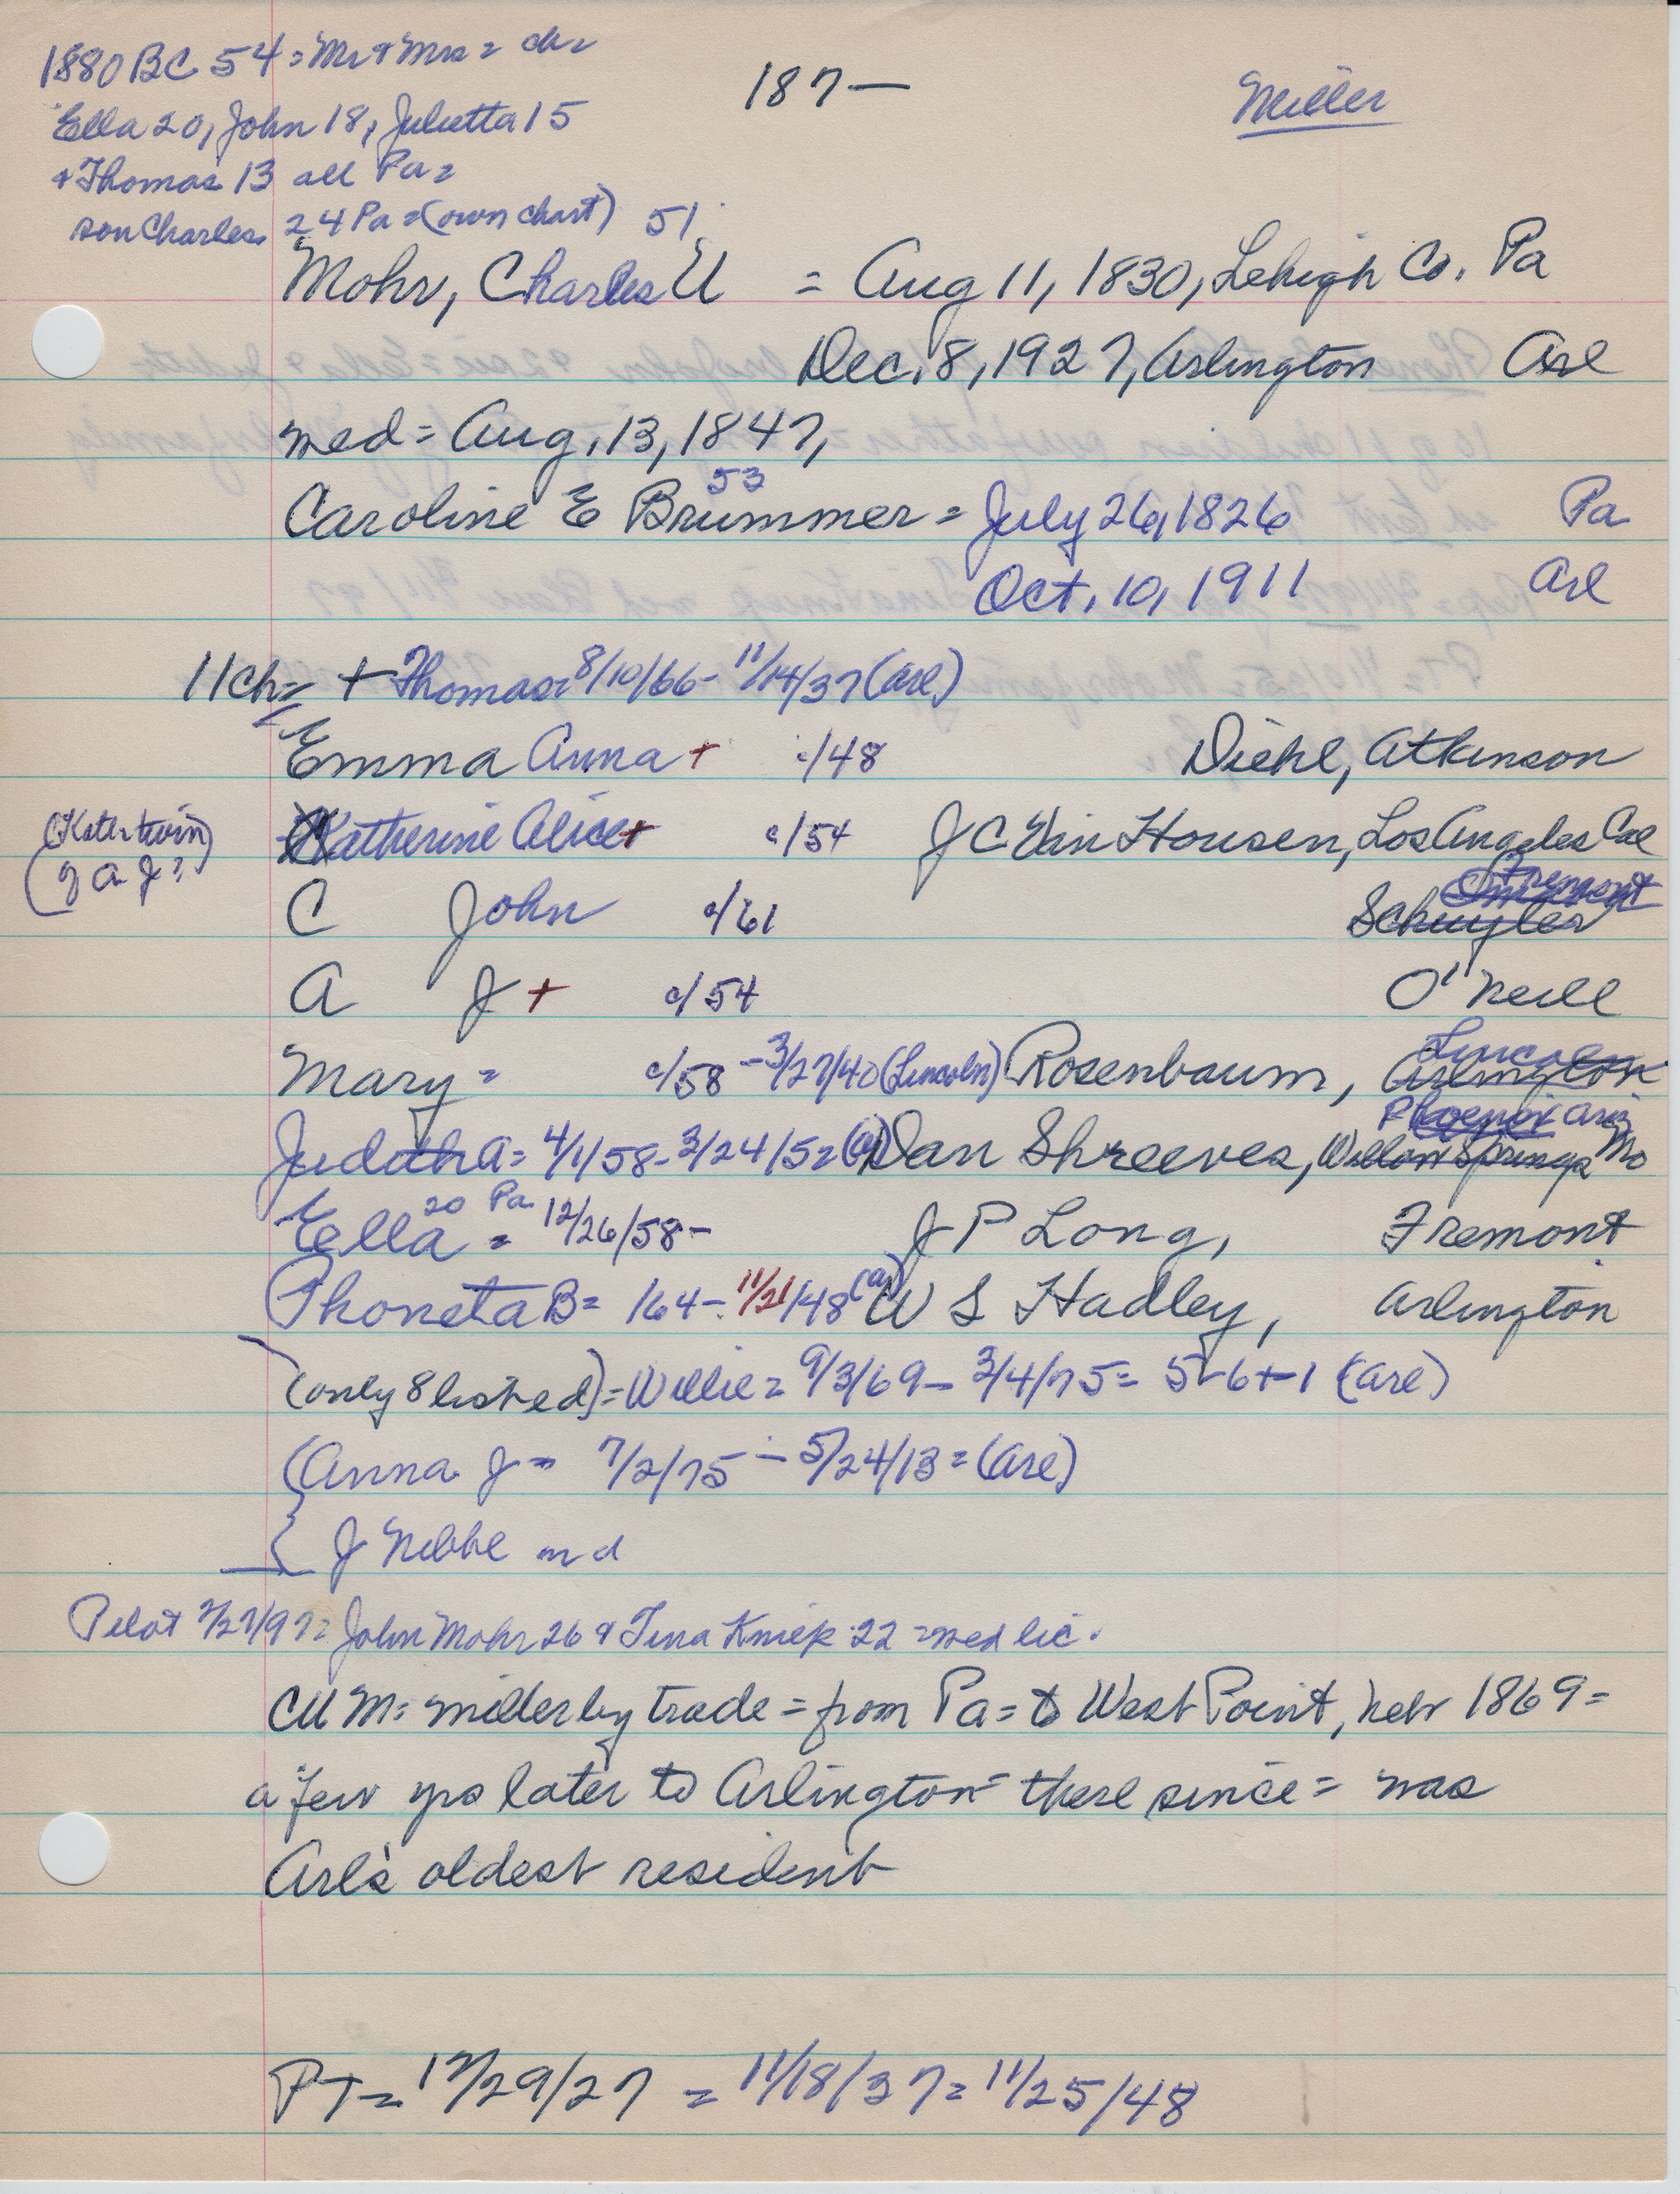 1880 BC 54 = Mr + Mrs = ch =
Ella 20, John 18, Julietta 15
+ Thomas 13 all Pa =
son Charles 24 Pa = (own chart) 51
187—
Miller
Mohr, Charles U = Aug 11, 1830, Lehigh Co. Pa
Dec. 8, 1927, Arlington Arl
med = Aug. 13, 1847,
53
Caroline E Brummer = July 26, 1826 Pa
Oct. 10, 1911 Arl
11 ch = + Thomas = 8/10/66 - 11/14/37 (Arl)
Emma Anna + c/48 Diehl, Atkinson
(Kath twin
of A J?)
Katherine Alice + c/54 J C Van Housen, Los Angeles Cal
Fremont
C John c/61 Schuyler
A J + c/54 O'Neill
Lincoln
Mary = c/58 - 3/27/40 (Lincoln) Rosenbaum, Arlington
Phoenix Ariz
Judith A = 4/1/58 - 3/24/52 (a) Dan Shreeves, Willow Springs Mo
20 Pa
Ella = 12/26/58 - J P Long, Fremont
Phoneta B = 164 - 11/21/48 (a) W S Hadley, Arlington
(only 8 listed) = Willie = 9/3/69 - 3/4/75 = 5-6+1 (Arl)
(Anna J = 7/2/75 - 5/24/13 = (Arl)
J Nebbe md
Pilot 2/27/97 = John Mohr 26 + Tina Kniep 22 = med lic.
CUM = miller by trade = from Pa = to West Point, Nebr 1869 =
a few yrs later to Arlington = there since = was
Arl's oldest resident
PT = 12/29/27 = 11/18/37 = 11/25/48